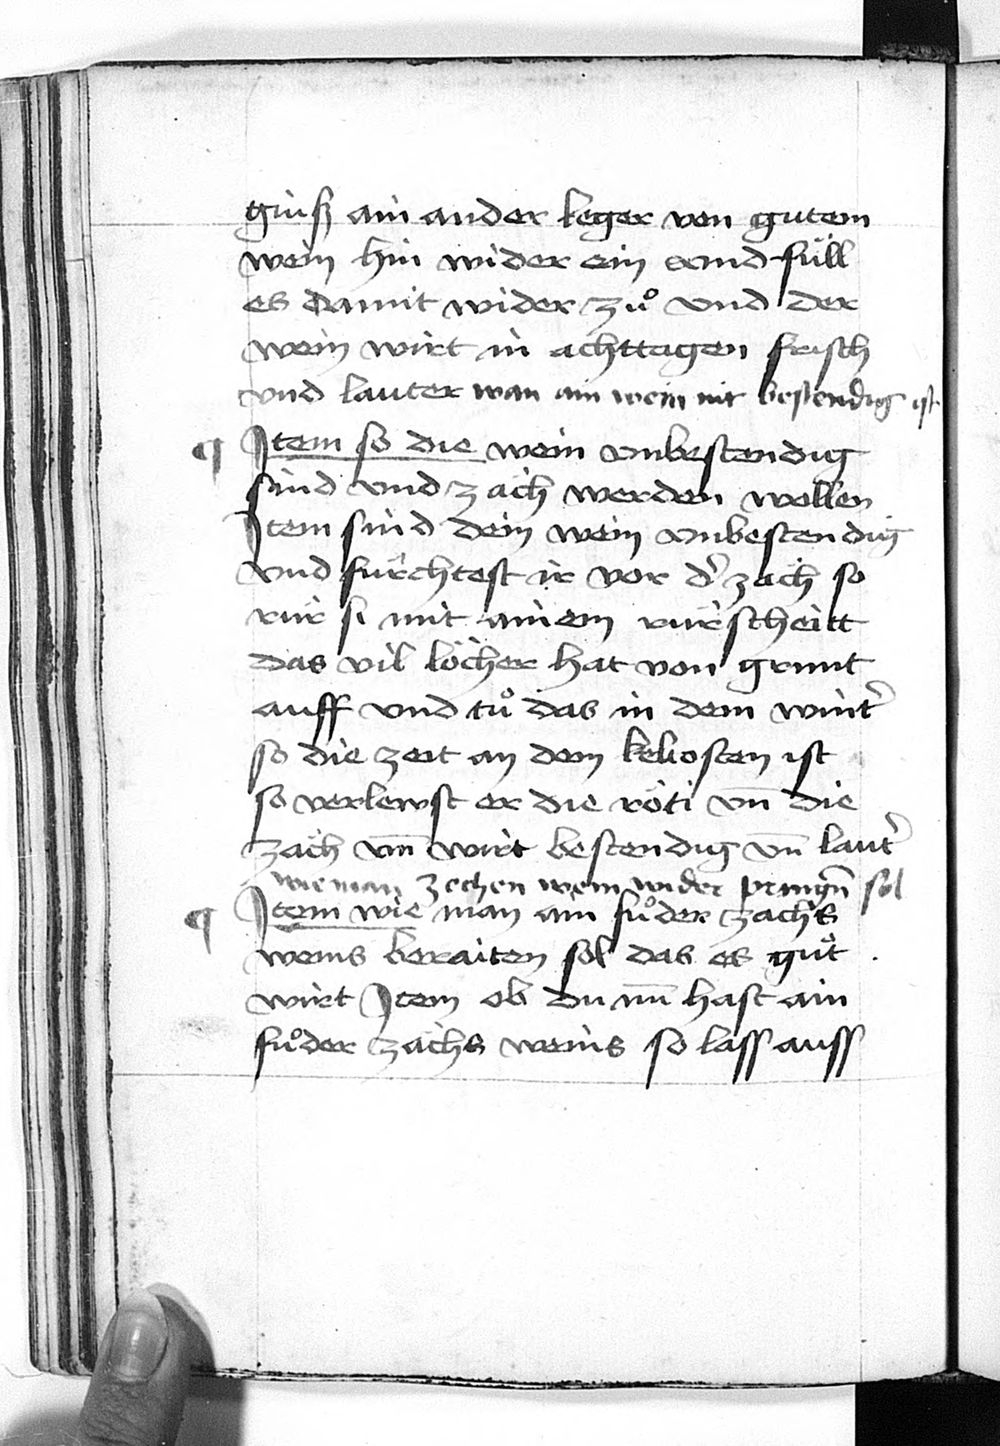 giuß ain ander leger von gutem
wein hin wider ein vnnd füll
es damit wider zuͦ vnd der
wein wirt in achttagen frisch
vnd lauter wan ain wein nit bestendig ist
¶ Item so die wein vnbestendig
sind vnd zäch werden wellen
Item sind dein wein vnbestendig
vnd fürchtest ir vor d' zäch so
rür si mit ainem rürscheitt
das vil löcher hat von grunt
auff vnd tuͦ das in dem wint'
so die zeit an dem keltosten ist
so verlewst er die röti vn̄ die
zäch vn̄ wirt bestendig vn̄ laut'
wie man zechen wein wider pringn̄ sol
¶ Item wie man ain fuͦder zächs
weins beraiten sol das es guͦt
wirt Item ob du nu̅ hast ain
fuͦder zächs weins so lass auss